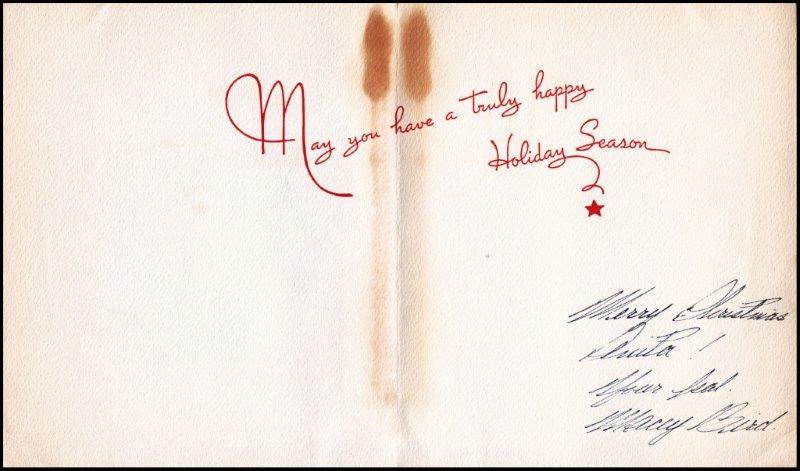 May you have a truly happy
Holiday Season
Merry Christmas
Anita!
Your Pal.
Macey Baird.